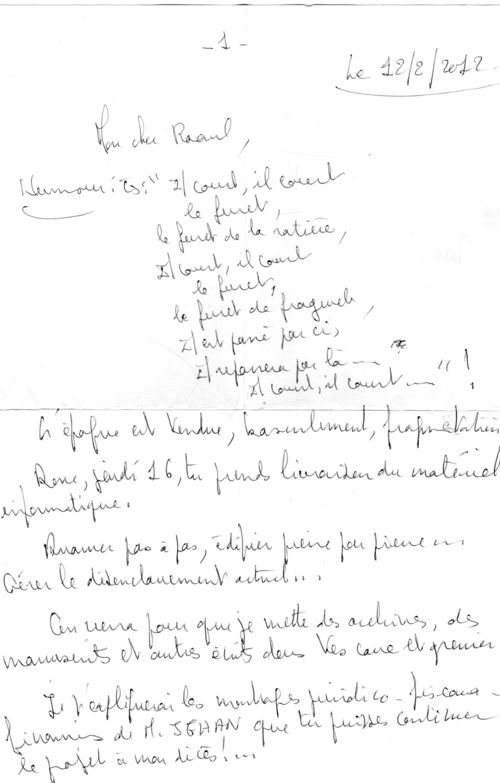 - 1 -
Le 12/2/2012
Mon cher Raoul,
"Il court, il court
le furet,
le furet de la ratière,
Il court, il court
le furet,
le furet de
Il est passé par ci,
Il repassera par là ...
Il court, il court ... " !
L'époque est tendue, basculement, fragmentation
Donc, jeudi 16, tu prends livraison du matériel
informatique.
Avancer pas à pas, édifier pierre par pierre ...
Gérer le désenclavement actuel ...
On verra pour que je mette des archives, des
manuscrits et autres écrits dans tes cave et grenier
Je t'expliquerai les montages juridico-fiscaux-
financiers de M. JEHAN que tu puisses continuer
le projet à mon décès ! ...